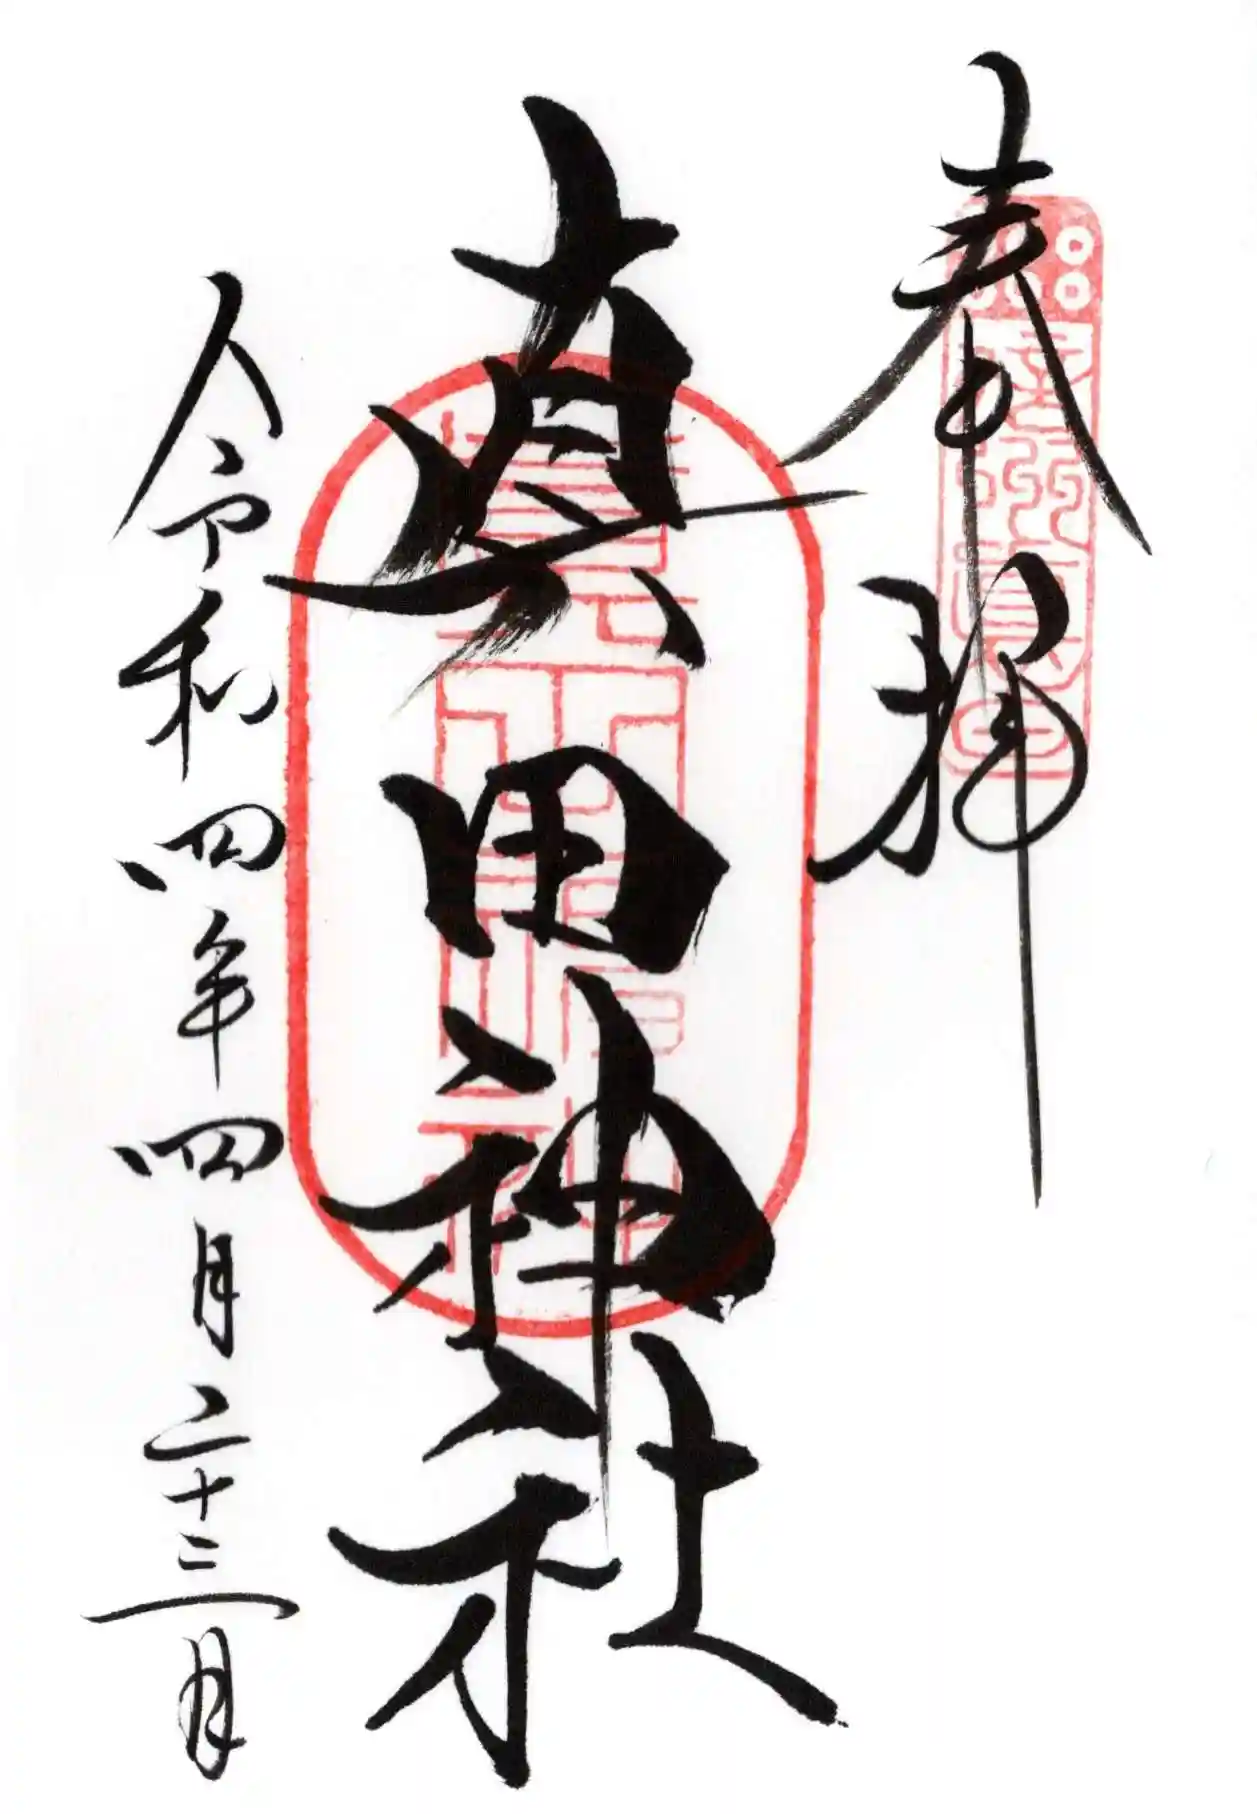 奉拝
真田神社
令和四年四月二十三日